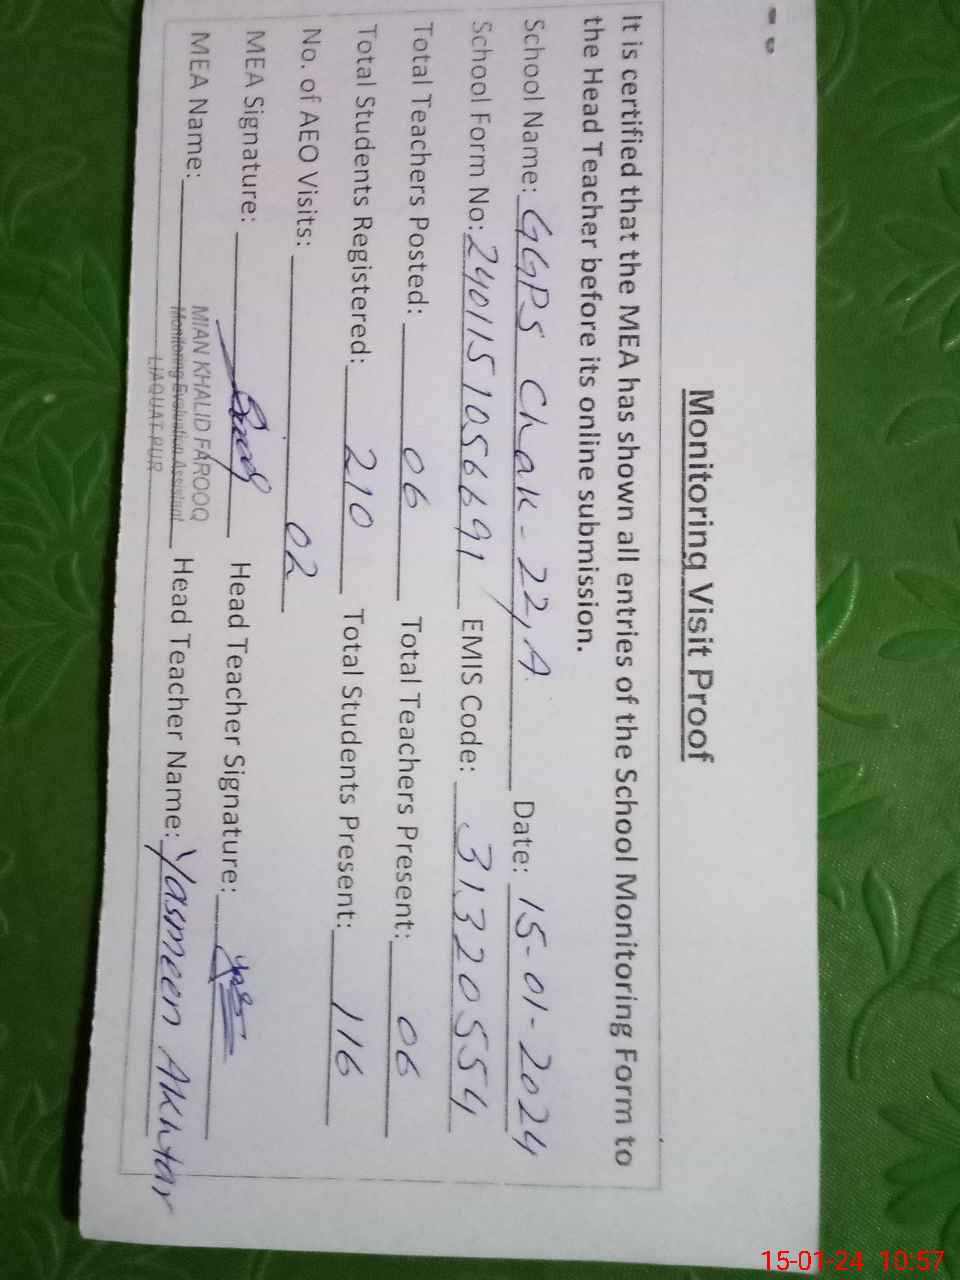 Monitoring Visit Proof
It is certified that the MEA has shown all entries of the School Monitoring Form to
the Head Teacher before its online submission.
School Name: GGPS Chak-22/A Date: 15-01-2024
School Form No: 2401151056691 EMIS Code: 31320554
Total Teachers Posted: 06 Total Teachers Present: 06
Total Students Registered: 210 Total Students Present: 116
No. of AEO Visits: 02
MEA Signature: Head Teacher Signature:
MEA Name: MIAN KHALID FAROOQ Head Teacher Name: Yasmeen Akhtar
Monitoring Evaluation Assistant
LIAQUAT PUR
15-01-24 10:57